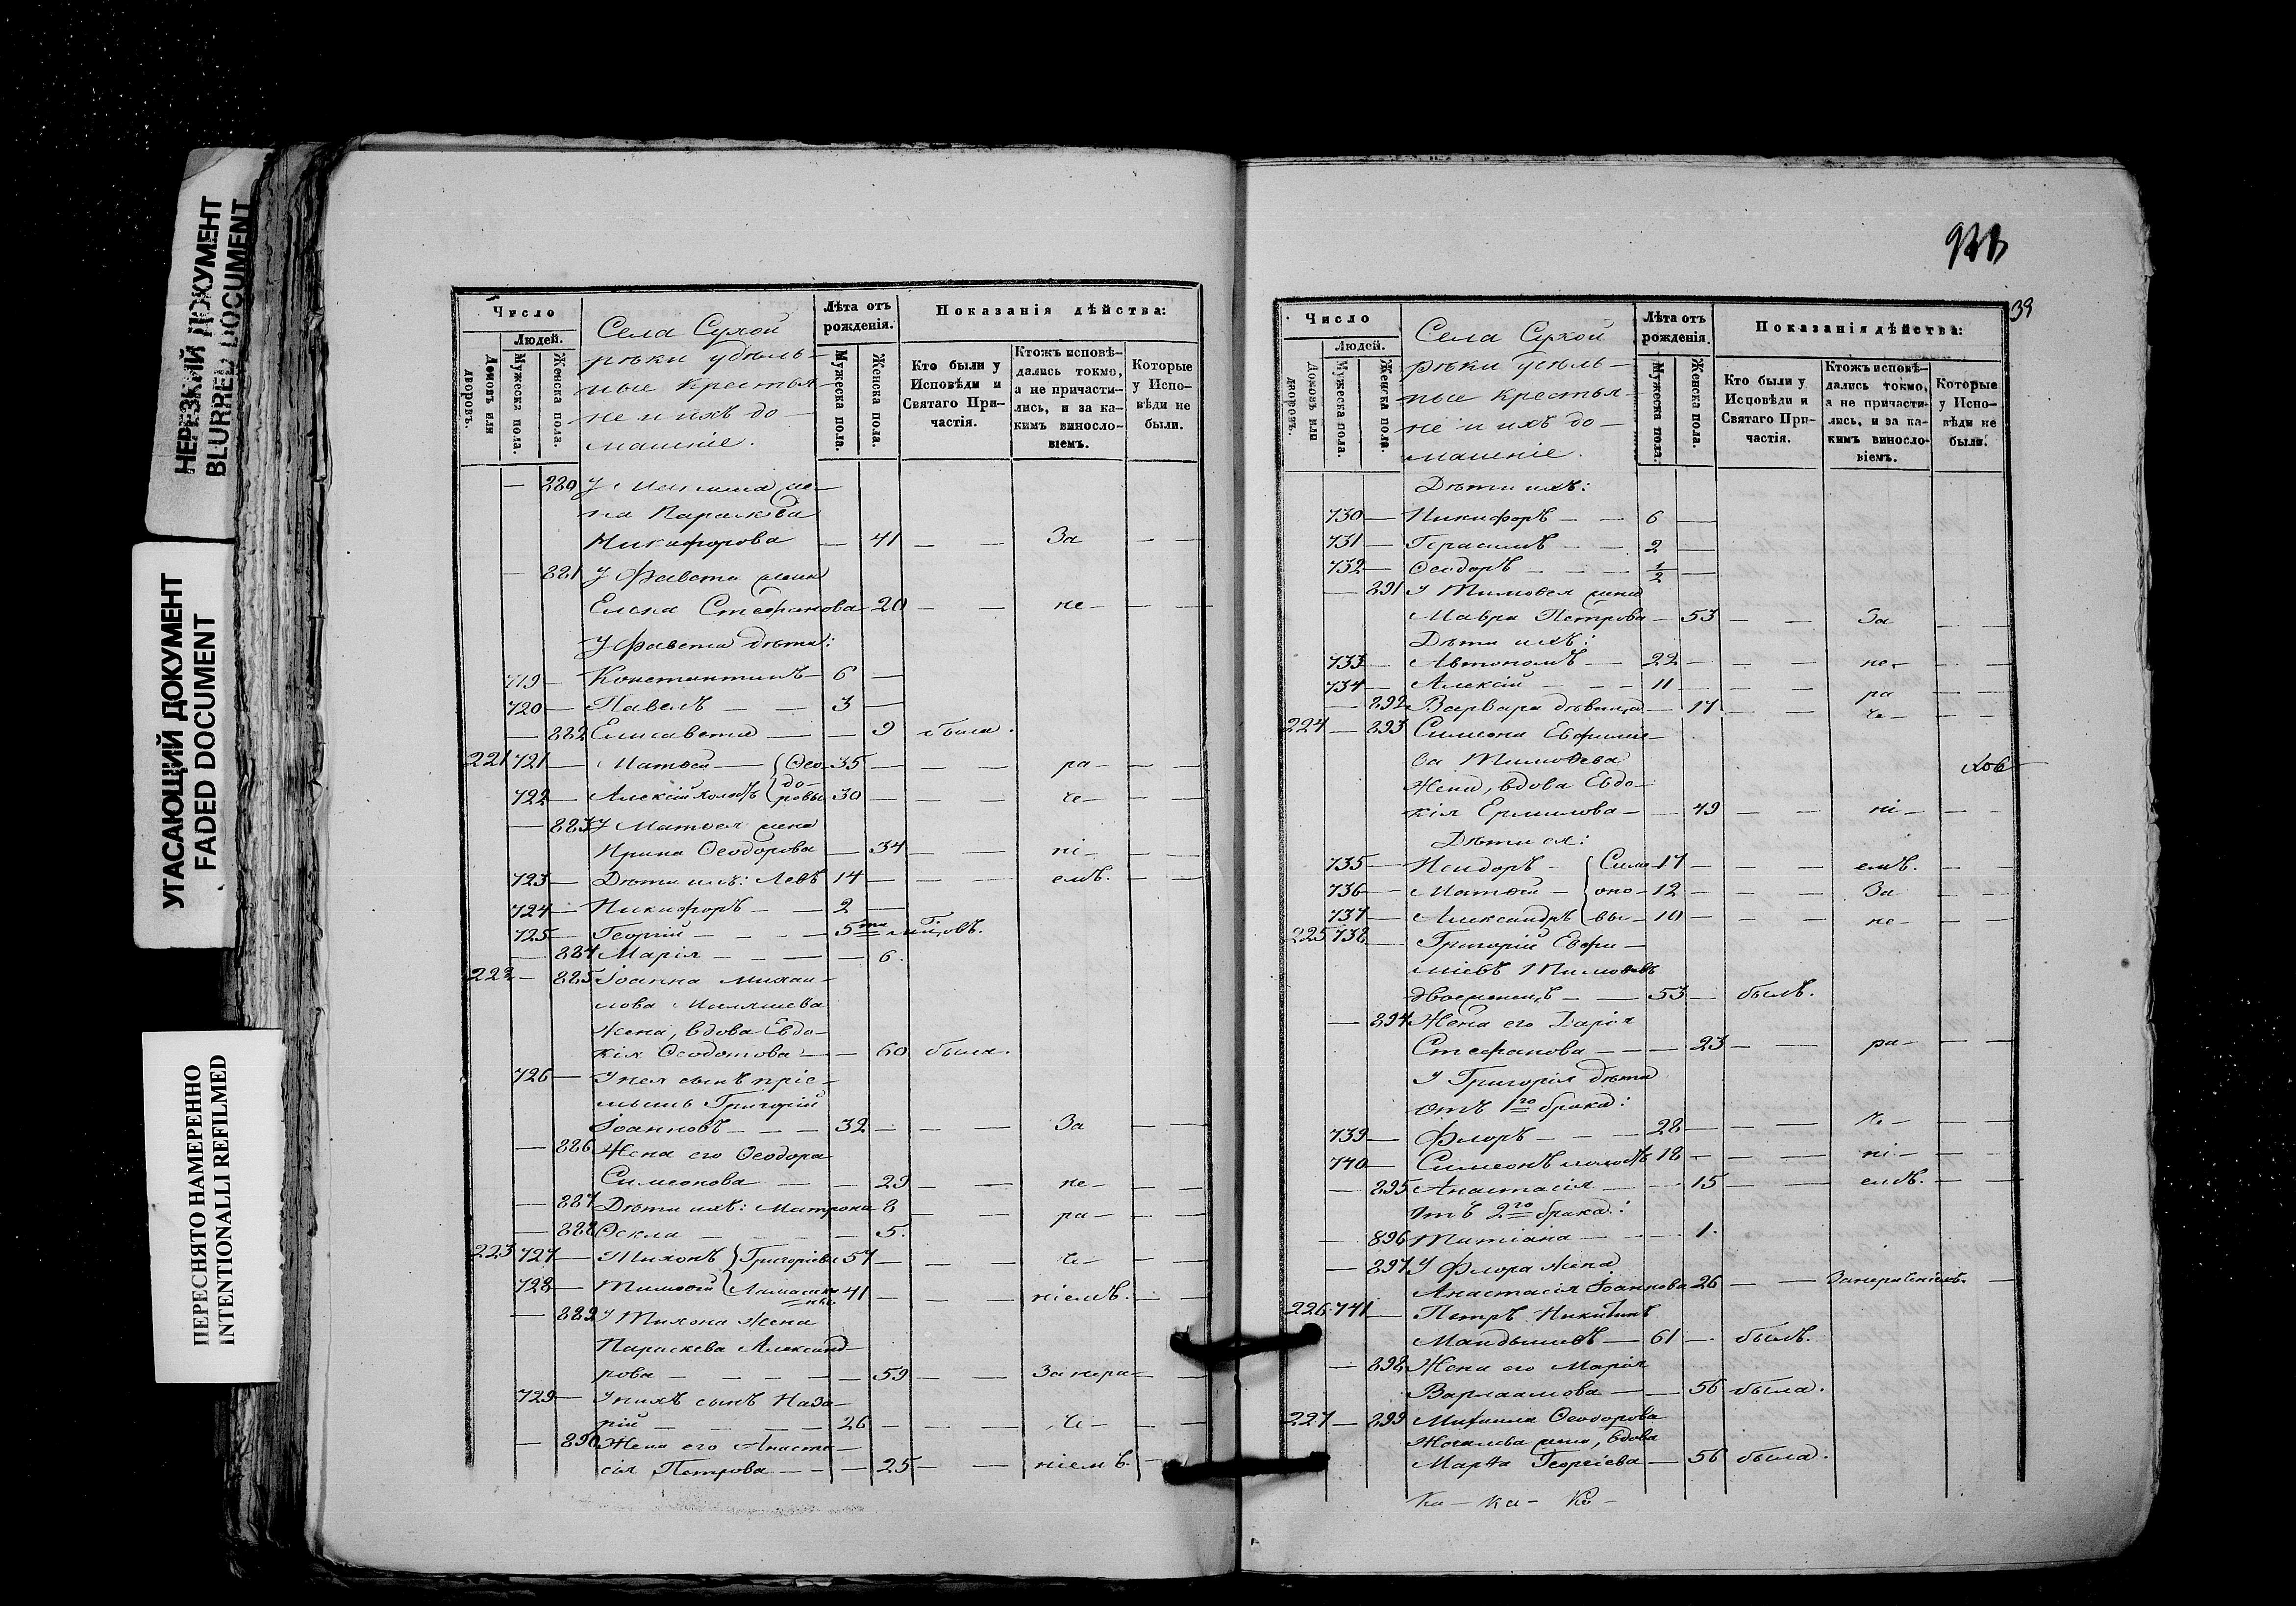 НЕРЕЗКИЙ ДОКУМЕНТ
BLURRED DOCUMENT
УГАСАЮЩИЙ ДОКУМЕНТ
FADED DOCUMENT
ПЕРЕСНЯТО НАМЕРЕННО
INTENTIONALLI REFILMED
Число
Людей.
Домовъ или дворовъ.
Мужеска пола.
Женска пола.
Села Сухой
рѣки удѣль-
ные крестья-
не и ихъ до-
машніе.
Лѣта отъ рожденія.
Мужеска пола.
Женска пола.
Показанія дѣйства:
Кто были у Исповѣди и Святаго Причастія.
Ктожъ исповѣ-
дались токмо,
а не причасти-
лись, и за ка-
кимъ виносло-
віемъ.
Которые
у Испо-
вѣди не
были.
— 880 У же-
на Параскева
Никифорова — 41 — — За — —
— 881 У Фавста жена
Елена Стефанова 20 — — не — — —
У Фавста дѣти:
719 — Константинъ — 6 —
720 — Павелъ — — 3 —
— 882 Елисавета — — 9 была.
221 721 — Матѳей — Ѳео- 35 — — — ра — — —
722 — Алексій холостъ до-ровы 30 — — — че — — —
— 883 У Матѳея жена
Ирина Ѳеодорова — 34 — — ні — — —
723 — Дѣти ихъ: Левъ 14 — — — емъ. — —
724 — Никифоръ — — 2 —
725 — Георгій — — — 5ти мѣсяцовъ.
— 884 Марія — — — — 6.
222 — 885 Іоанна Михаи-
лова
жена, вдова Евдо-
кія Ѳеодотова — — 60 была.
726 — У нея сынъ пріе-
мышъ Григорій
Іоанновъ — — — 32 — — — За — —
— 886 Жена его Ѳеодора
Симеонова — — — 29 — — не — — —
— 887 Дѣти ихъ: Матрона 8 — — ра — — —
— 888 Ѳекла — — — — 5.
223 727 — Тихонъ Григорьевы 57 — — — че — — —
728 — Тимоѳей 41 — — — ніемъ. — —
— 889 У Тихона жена
Параскева Александ-
рова — — — — — 59 — — За нера — —
729 — У нихъ сынъ Наза-
рій — — — — 26 — — — че — — —
— 890 Жена его Анаста-
сія Петрова — — — 25 — — ніемъ. —
39
Число
Людей.
Домовъ или дворовъ.
Мужеска пола.
Женска пола.
Села Сухой
рѣки удѣль-
ные крестья-
не и ихъ до-
машніе.
Лѣта отъ рожденія.
Мужеска пола.
Женска пола.
Показанія дѣйства:
Кто были у
Исповѣди и
Святаго При-
частія.
Ктожъ исповѣ-
дались токмо,
а не причасти-
лись, и за ка-
кимъ виносло-
віемъ.
Которые
у Испо-
вѣди не
были.
Дѣти ихъ:
730 — Никифоръ — — 6 —
731 — Герасимъ — — 2 —
732 — Ѳеодоръ — — — 1/2 —
— 891 У Тимоѳея жена
Мавра Петрова — 53 — — За — —
Дѣти ихъ:
733 — Автономъ — 22 — — — не — — —
734 — Алексій — — — 11 — — — ра — —
— 892 Варвара дѣвица — 17 — — че — — —
224 — 893 Симеона Евфиміе-
ва Тимоѳева
жена, вдова Евдо-
кія Ермилова — — 49 — — ні — — —
Дѣти ея:
735 — Исидоръ — Симе- 17 — — — емъ. —
736 — Матѳей — оно- 12 — — — За —
737 — Александръ вы — 10 — — — не — —
225 738 — Григорій Евфи-
міевъ Тимоѳеевъ
двоеженецъ — — 53 — былъ.
— 894 Жена его Дарія
Стефанова — — — 23 — — ра — — —
У Григорія дѣти
отъ 1го брака:
739 — Флоръ — — — 28 — — — че — — —
740 — Симеонъ холостъ 18 — — — ні — —
— 895 Анастасія — — 15 — — емъ. — —
Отъ 2го брака:
— 896 Татіана — — — 1.
— 897 У Флора жена
Анастасія Іоаннова 26 — — За нераченіемъ. —
226 741 — Петръ Никитинъ
— 61 — былъ.
— 898 Жена его Марія
Варлаамова — — 56 была.
227 — 899 Михаила Ѳеодорова
жена, вдова
Марѳа Георгіева — 56 была.